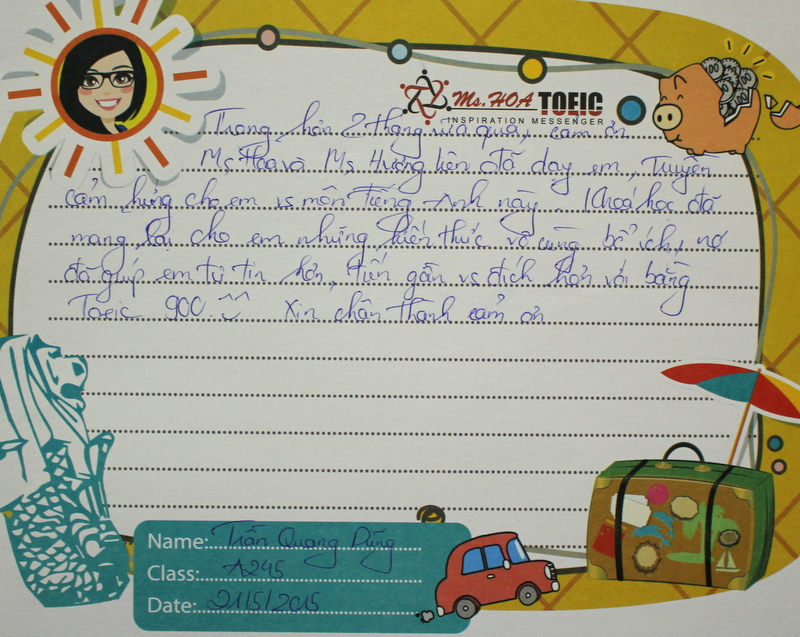 Ms. HOA TOEIC
INSPIRATION MESSENGER
Trong hơn 2 tháng vừa qua, cảm ơn
Ms Hoa và Ms Hương liên đã dạy em, Truyền
cảm hứng cho em vs môn Tiếng Anh này. Khoá học đã
mang lại cho em những kiến thức vô cùng bổ ích, nó
đã giúp em tự tin hơn, tiến gần vs đích hơn với bằng
Toeic 900. Xin chân thành cảm ơn
Name: Trần Quang Dũng
Class: A245
Date: 21/5/2015